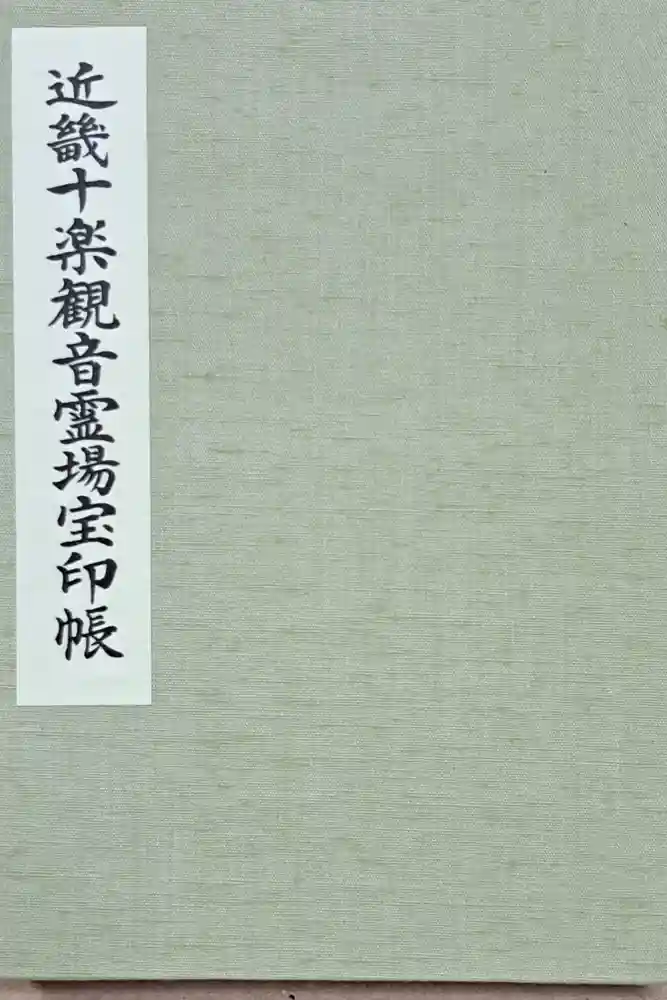 近畿十楽観音霊場宝印帳